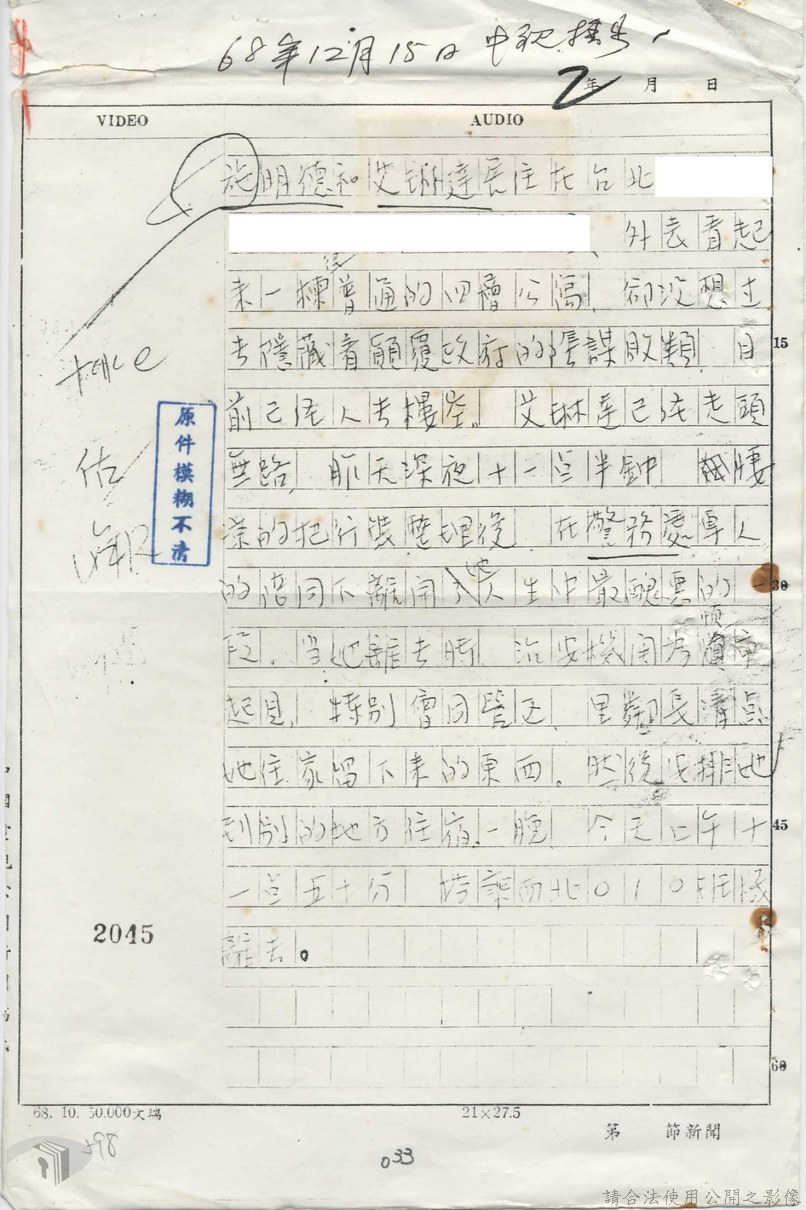 68年12月15日 中視
2年 月 日
VIDEO AUDIO
施明德和艾琳達居住在台北
外表看起
來一棟普通的四層公寓、卻沒想過
去隱藏着顛覆政府的陰謀敗類、目
前已經人去樓空。艾琳達已經走頭
無路、昨天深夜十一点半鐘
的把行裝整理後、在警務處專人
的陪同下離開了她人生中最醜惡的一
段。當她離去時、治安機関為慎重
起見、特別會同管區、里鄰長清點
她住家留下來的東西。然後安排她
到別的地方住宿一晚、今天上午十
一点五十分、搭乘西北010班機
離去。
15
30
45
60
原件模糊不清
2045
68. 10. 50.000文瑞
21×27.5
第 節新聞
598
033
請合法使用公開之影像